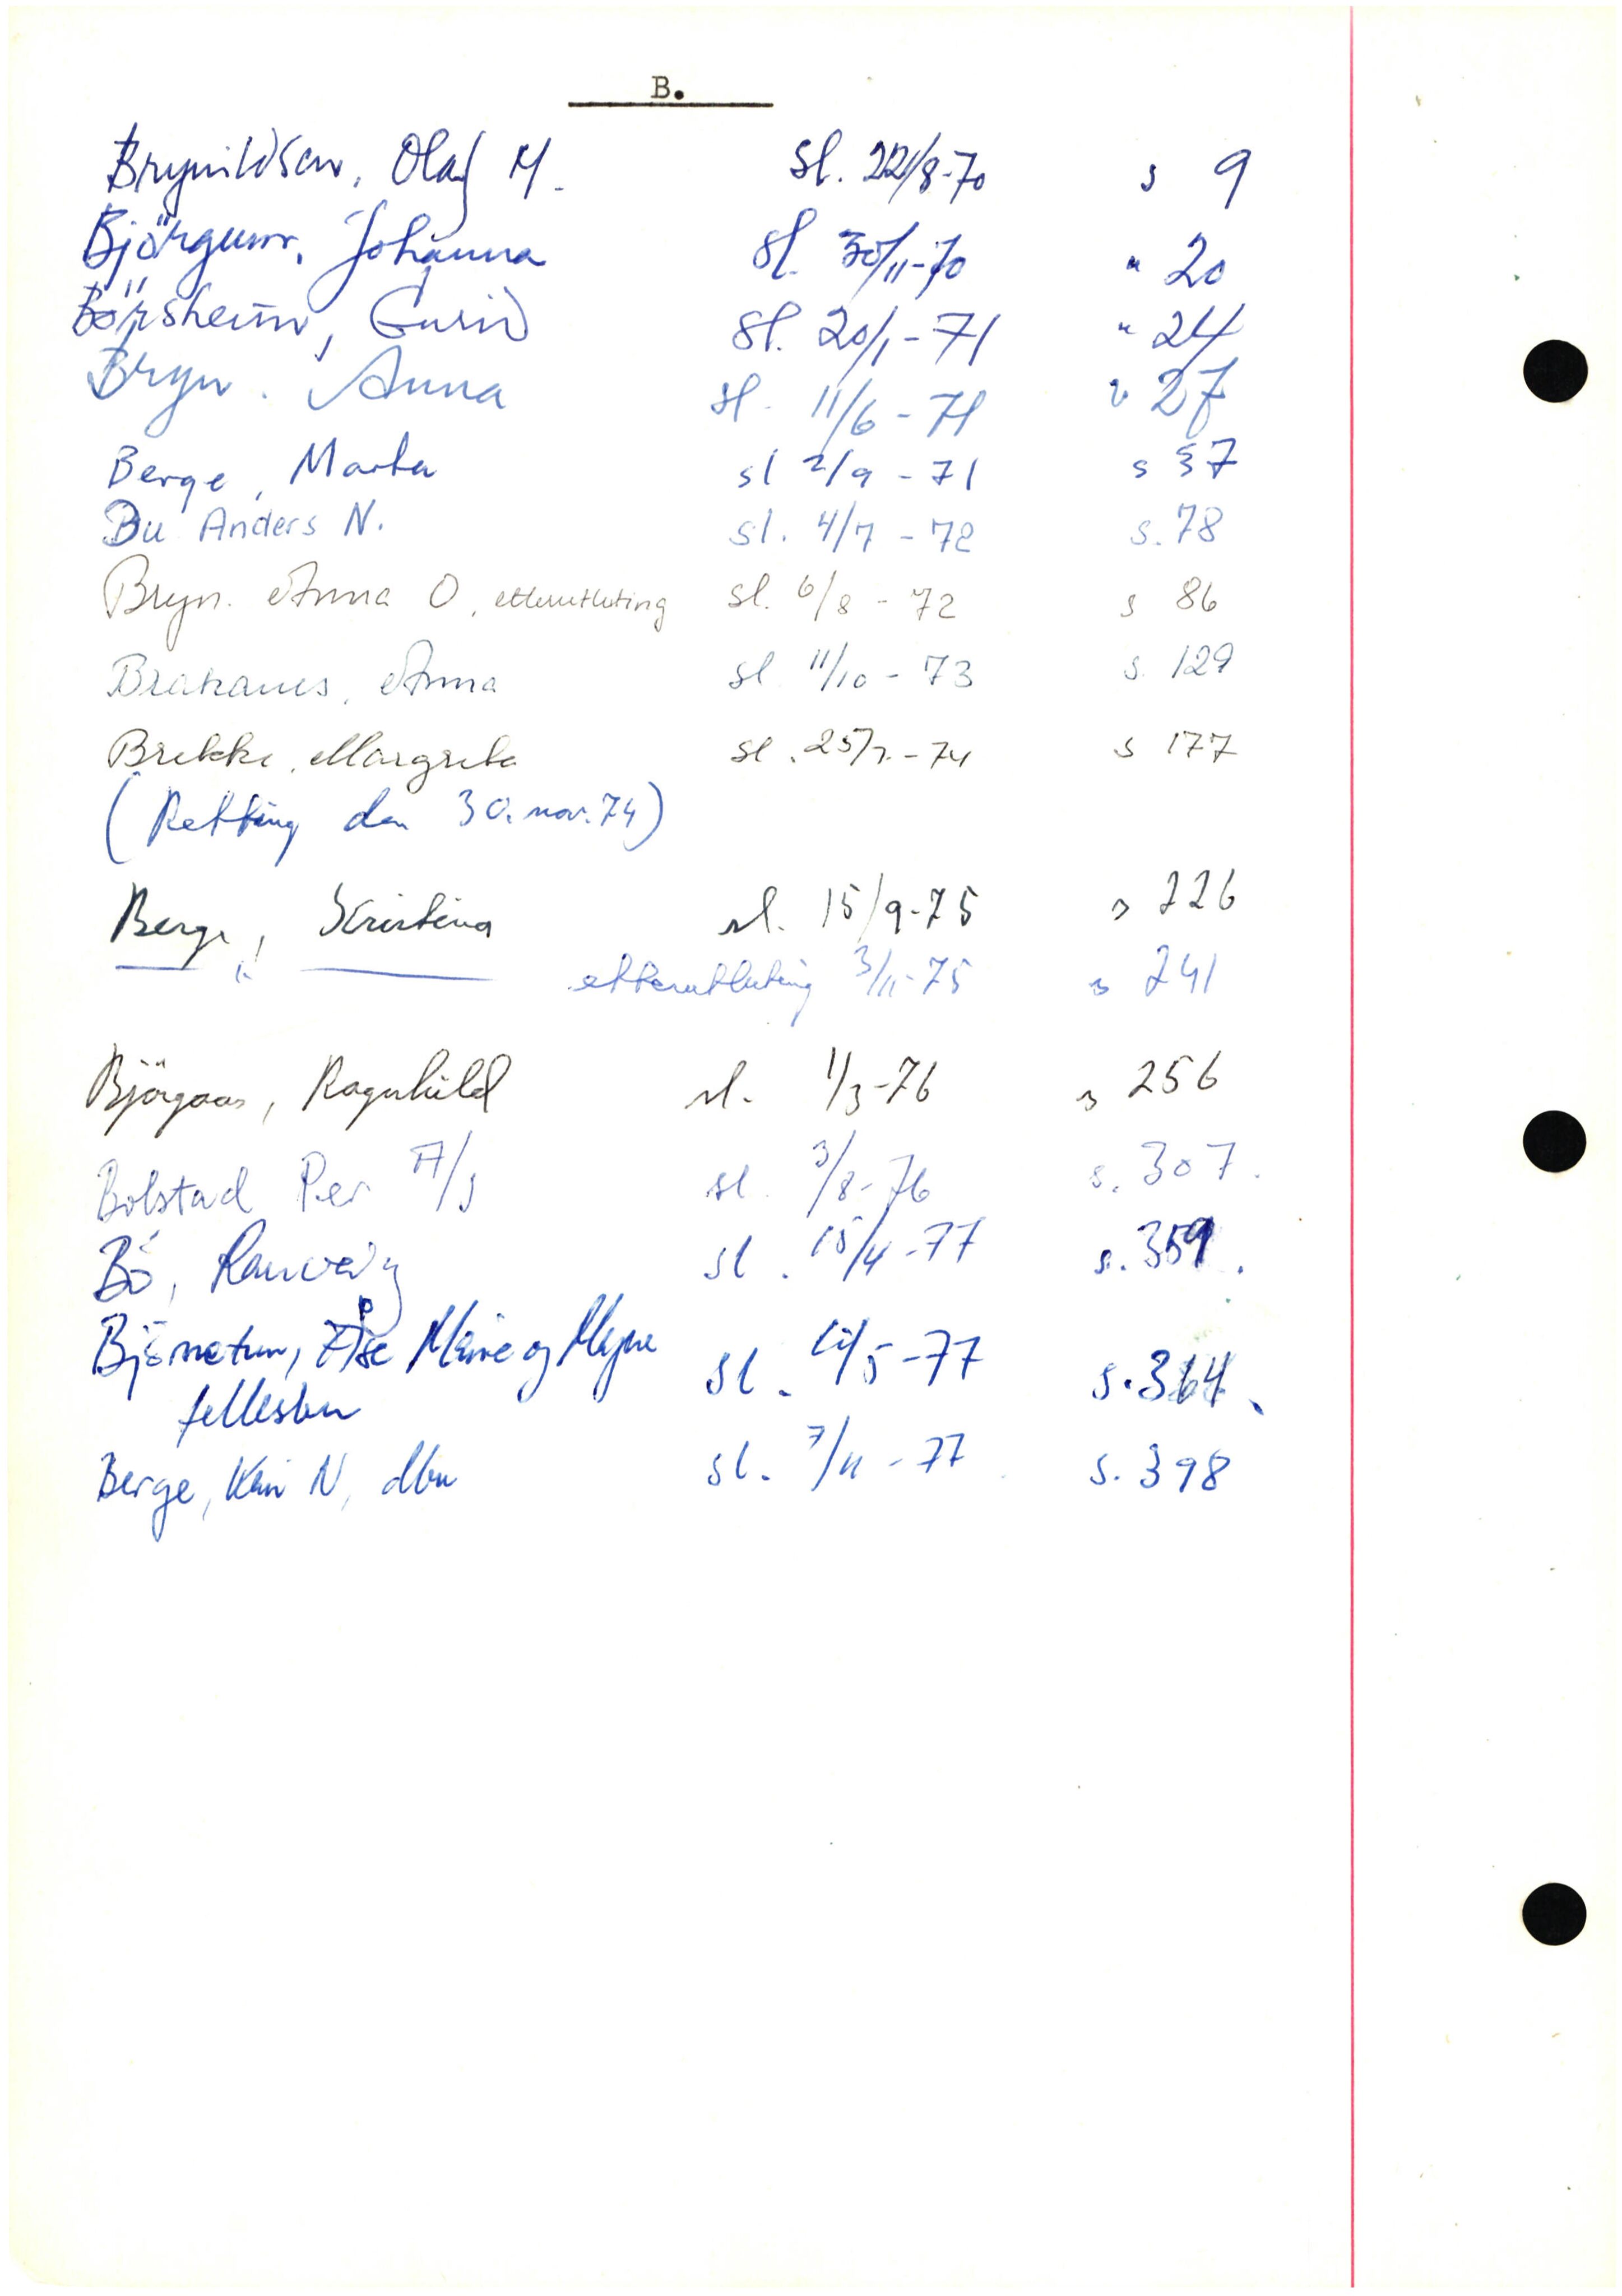 B.
Brynildsen, Olaf M. sl. 22/8-70 s 9
Björgum, Johanna sl. 30/11-70 " 20
Börsheim, Guri sl. 20/1-71 " 24
Bryn. Anna sl. 11/6-71 " 27
Berge, Marta sl 2/9-71 s 37
Bu Anders N. sl. 4/7-72 s. 78
Bryn. Anna O, etterutluting sl. 6/8-72 s 86
Brahaus, Anna sl 11/10-73 s. 129
Brekke, Margreta sl. 25/7.-74 s 177
(Retting den 30. nov. 74)
Berge, Kristina sl. 15/9-75 s 226
" etterutluting 3/11-75 s 241
Björgaas, Ragnhild sl. 1/3-76 s 256
Bolstad Per A/s sl. 3/8-76 s. 307.
Bö, Ranveig sl. 15/4-77 s. 359.
Björnetun, Åse Marie og Magne sl. /5-77 s. 364.
fellesbu
Berge, Kari N, dbu sl. 7/11-77 s. 398